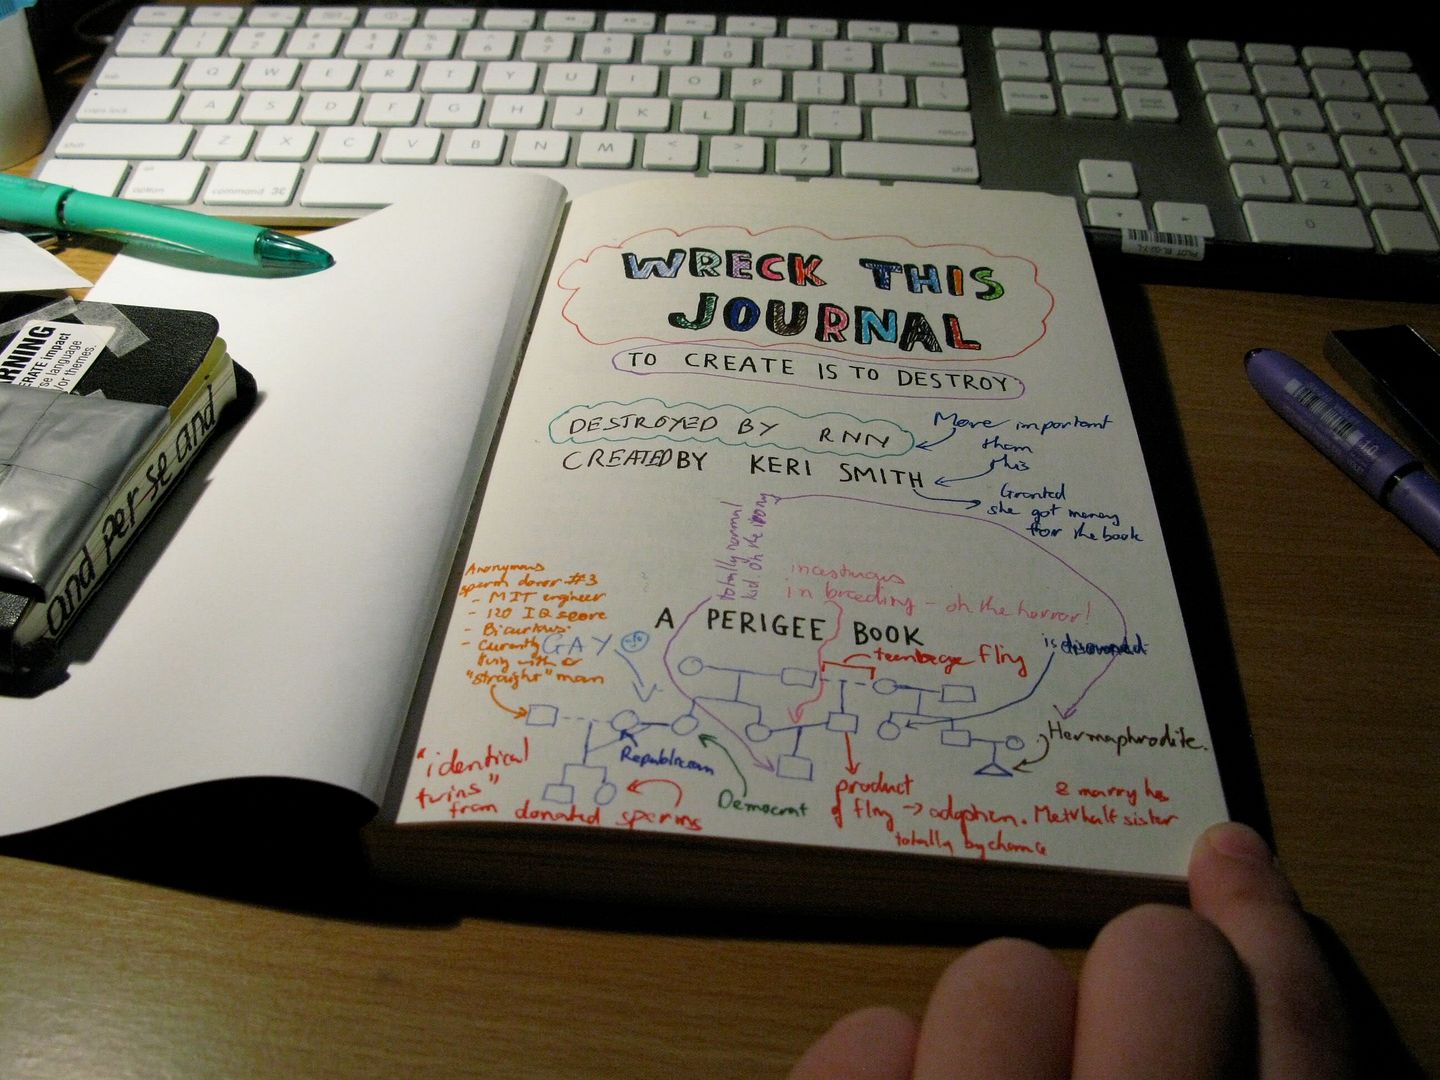 WRECK THIS
JOURNAL
TO CREATE IS TO DESTROY
DESTROYED BY RNN
CREATED BY KERI SMITH
More important
than
this
Granted
she got money
for the book
totally normal
kid. Oh the irony
incestuous
in breeding - oh the horror!
A PERIGEE BOOK
Anonymous
sperm donor #3
- MIT engineer
- 120 IQ score
- Bi curious
- Currently
living with a
"straight" man
GAY
teenage fling
is
Hermaphrodite.
Republican
Democrat
"identical
twins"
from donated sperms
product
of fling → adoption. Met half sister
& marry her
totally by chance
RNING
ERATE impact
se language
/or themes.
and per se and
Q W E R T Y U I O P
A S D F G H J K L
Z X C V B N M
caps lock
return
shift
shift
option
command ⌘
tab
4 5 6
1 2 3
0